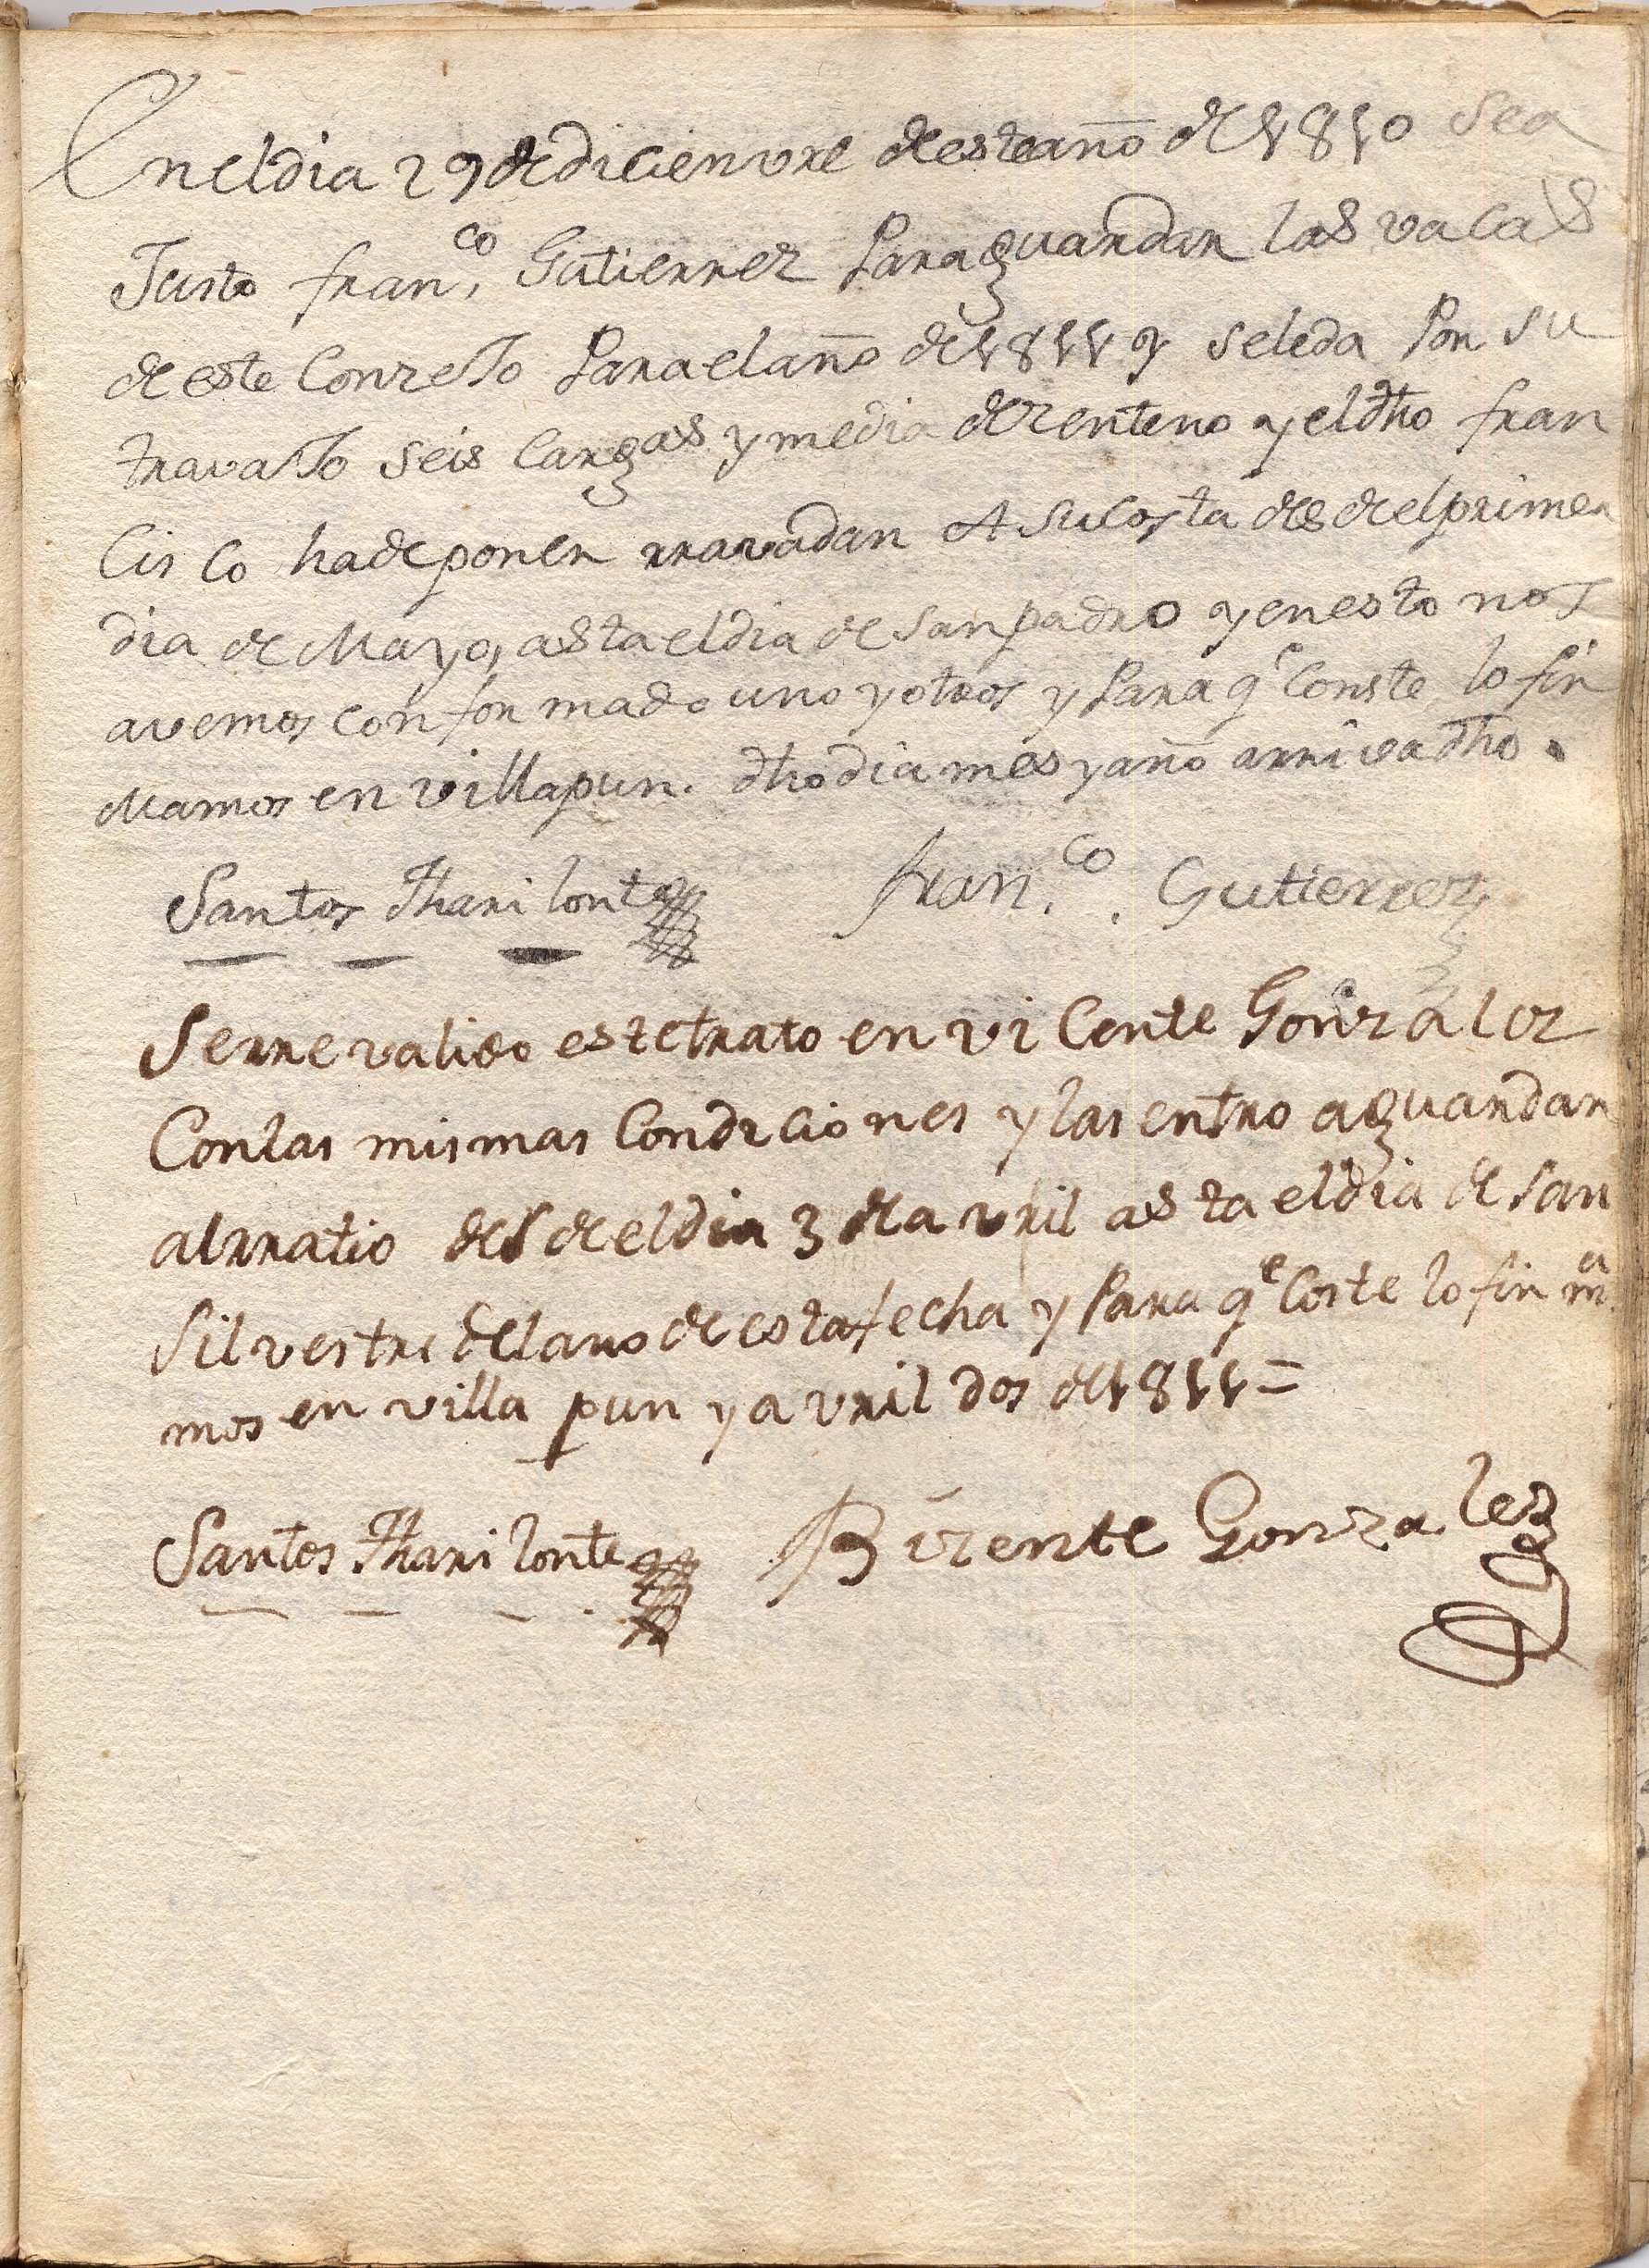 En el dia 29 de dicienvre de este año de 1810 sea
Justo fran.co Gutierrez Para guardar las vacas
de este ConzeJo Para el año de 1811 y se le da Por su
travaJo seis Cargas y media de zenteno y el dho fran
Cisco ha de poner rravadan A su Costa desde el primer
dia de Mayo, asta el dia de San padro y en esto nos
avemos conformado uno y otros y Para qe Conste lo fir
Mamos en villapun. dho dia mes y año arriva dho.
Santos Tharilonte fran.co Gutierrez
Serrevalido este trato en viCente Gonzalez
Con las mismas Condiciones y las entro a guardar
alrratio desde el dia 3 de avril asta el dia de San
Silvestre del año de esta fecha y Para qe Coste lo firma
mos en villa pun y avril dos de 1811 =
Santos Tharilonte Bizente Gonzalez